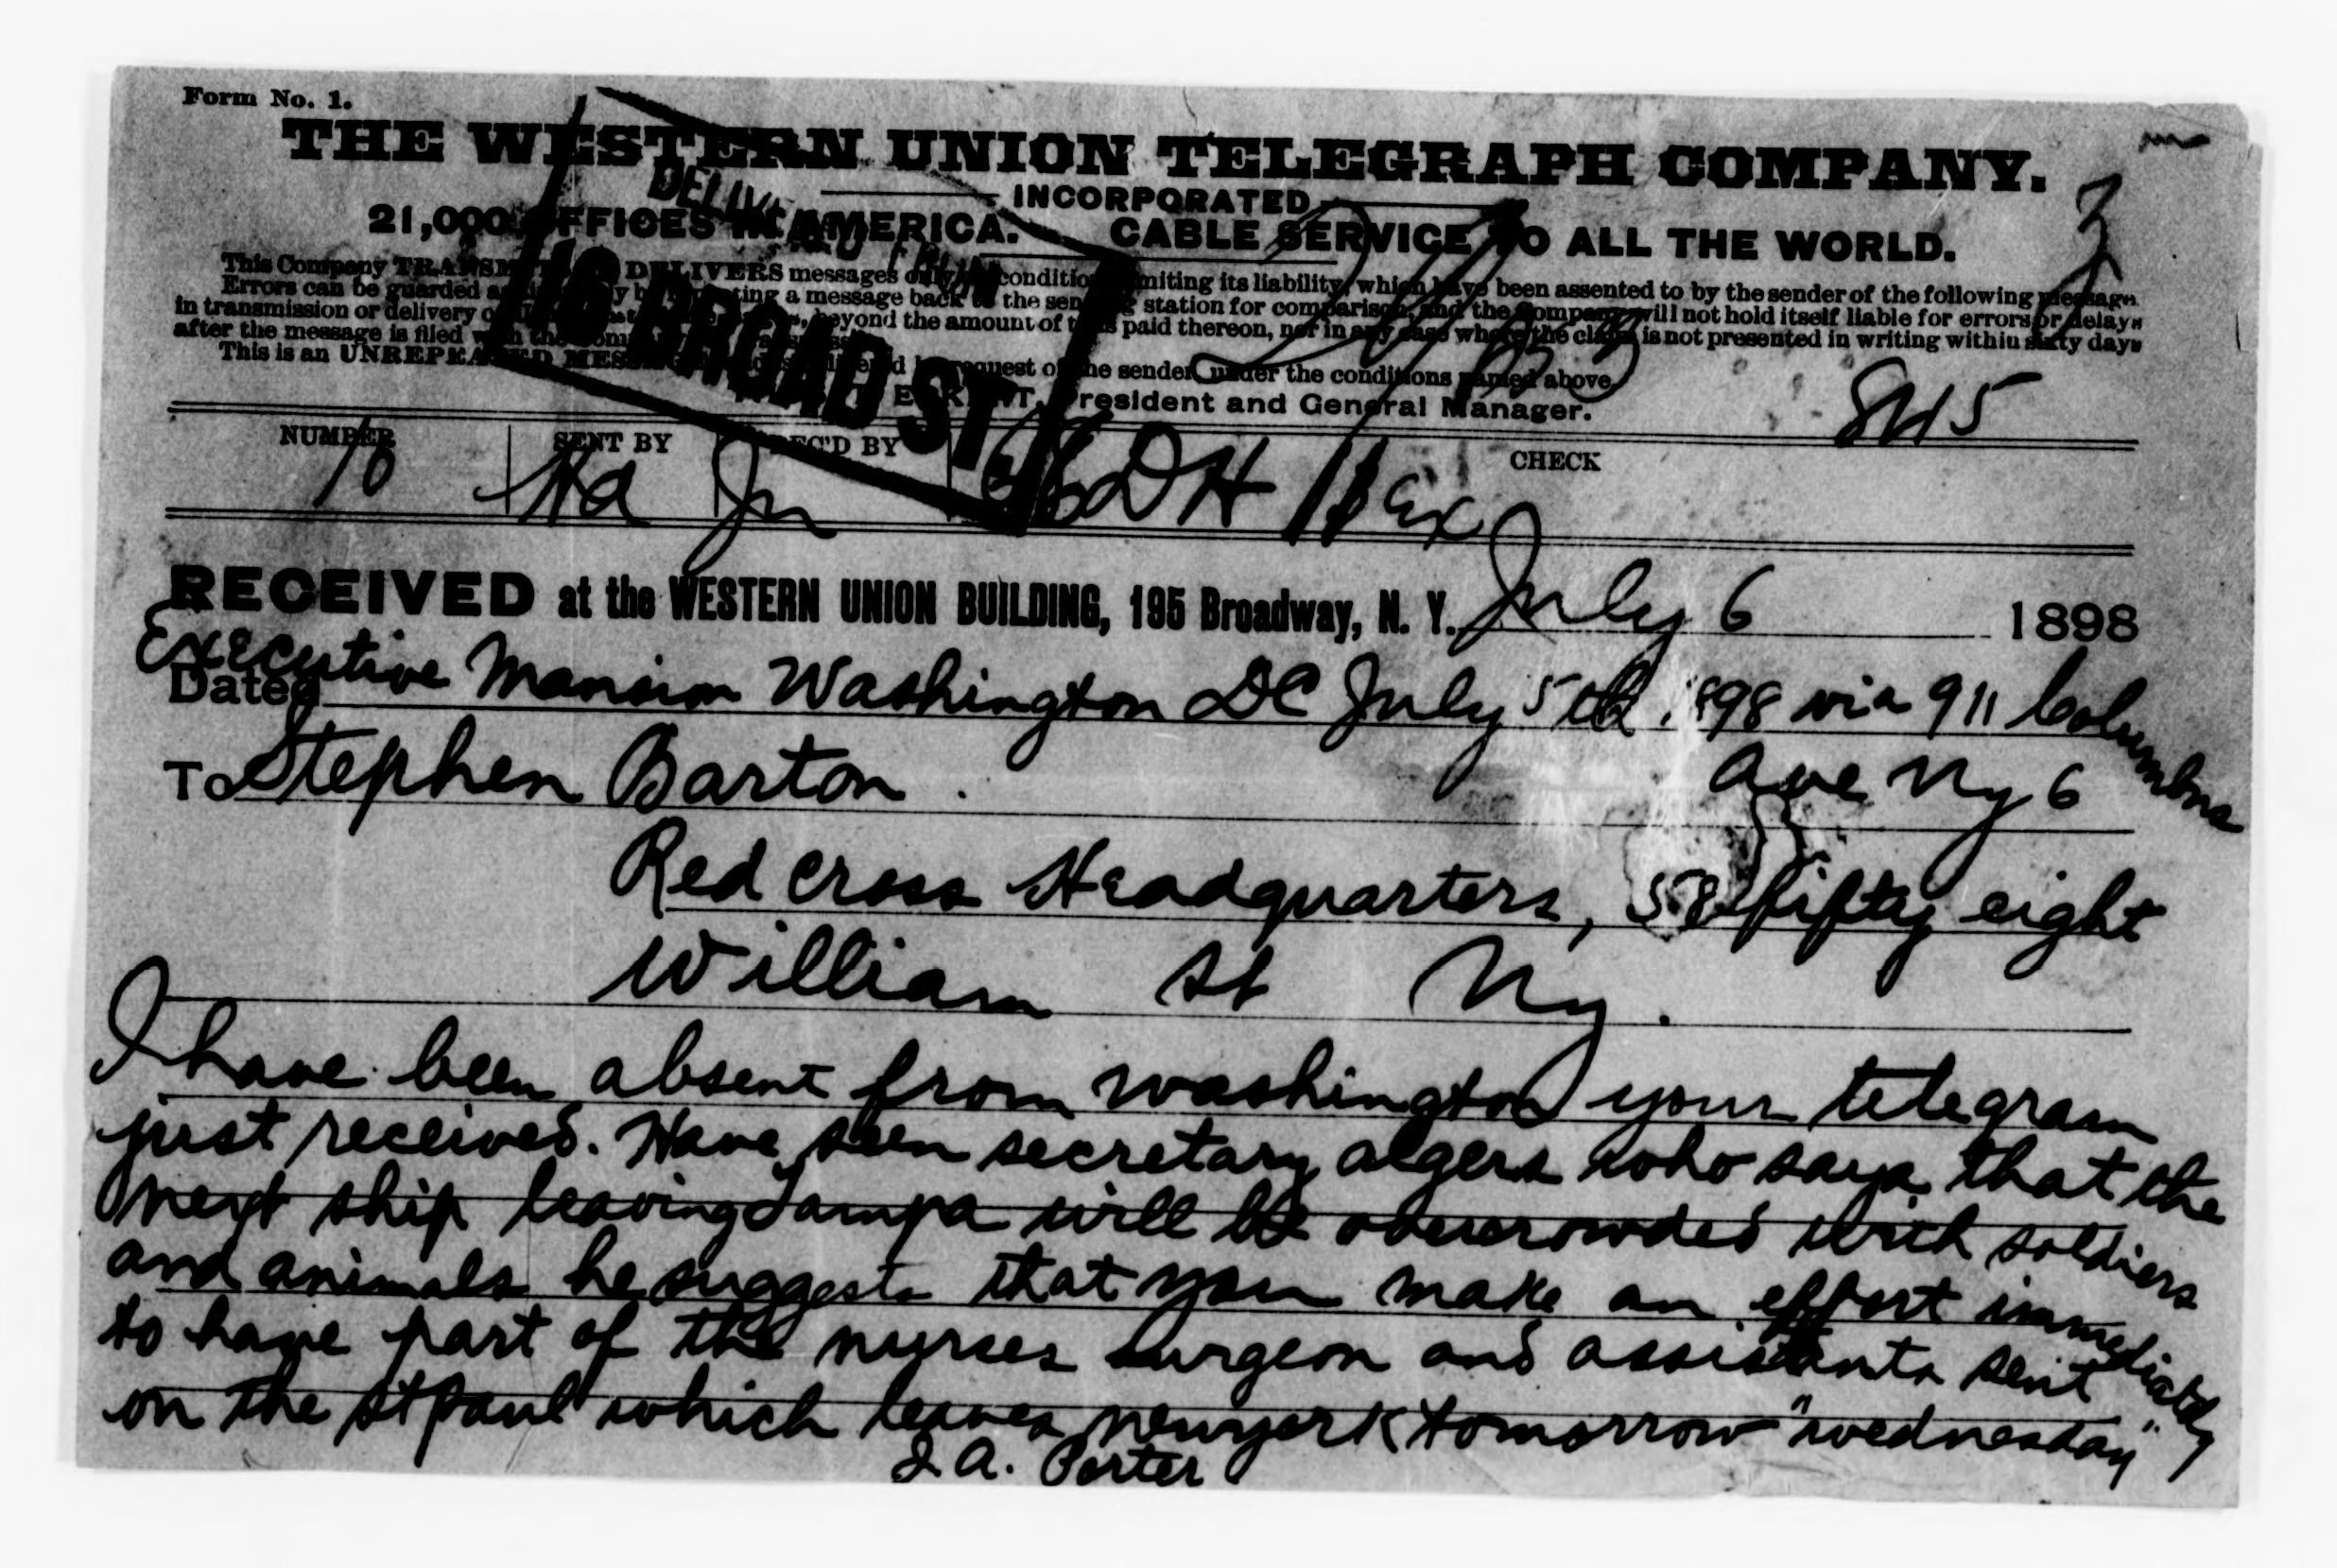 Form No. 1.
THE WESTERN UNION TELEGRAPH COMPANY.
INCORPORATED
21,000 OFFICES IN AMERICA. CABLE SERVICE TO ALL THE WORLD.
This Company TRANSMITS DELIVERS messages only conditions limiting its liability, which have been assented to by the sender of the following message.
Errors can be guarded against only by repeating a message back to the sending station for comparison, and the Company will not hold itself liable for errors or delays
in transmission or delivery of beyond the amount of tolls paid thereon, nor in any case where the claim is not presented in writing within sixty days
after the message is filed with the Company
This is an UNREPEATED MESSAGE delivered by request of the sender, under the conditions named above.
ECKERT, President and General Manager.
DELIVERED FROM
16 BROAD ST.
NUMBER SENT BY REC'D BY CHECK
10 Ha Jn DH
RECEIVED at the WESTERN UNION BUILDING, 195 Broadway, N. Y. July 6 1898
Dated Executive Mansion Washington DC July 5th 1898 via 911 Columbus
ave Ny 6
To Stephen Barton.
Red Cross Headquarters, 58 fifty eight
William St Ny.
I have been absent from washington your telegram
just received. Have seen secretary algers who says that the
next ship leaving Tampa will be overcrowded with soldiers
and animals he suggests that you make an effort immediately
to have part of the nurses surgeon and assistants sent
on the st paul which leaves newyork tomorrow "wednesday"
J. A. Porter